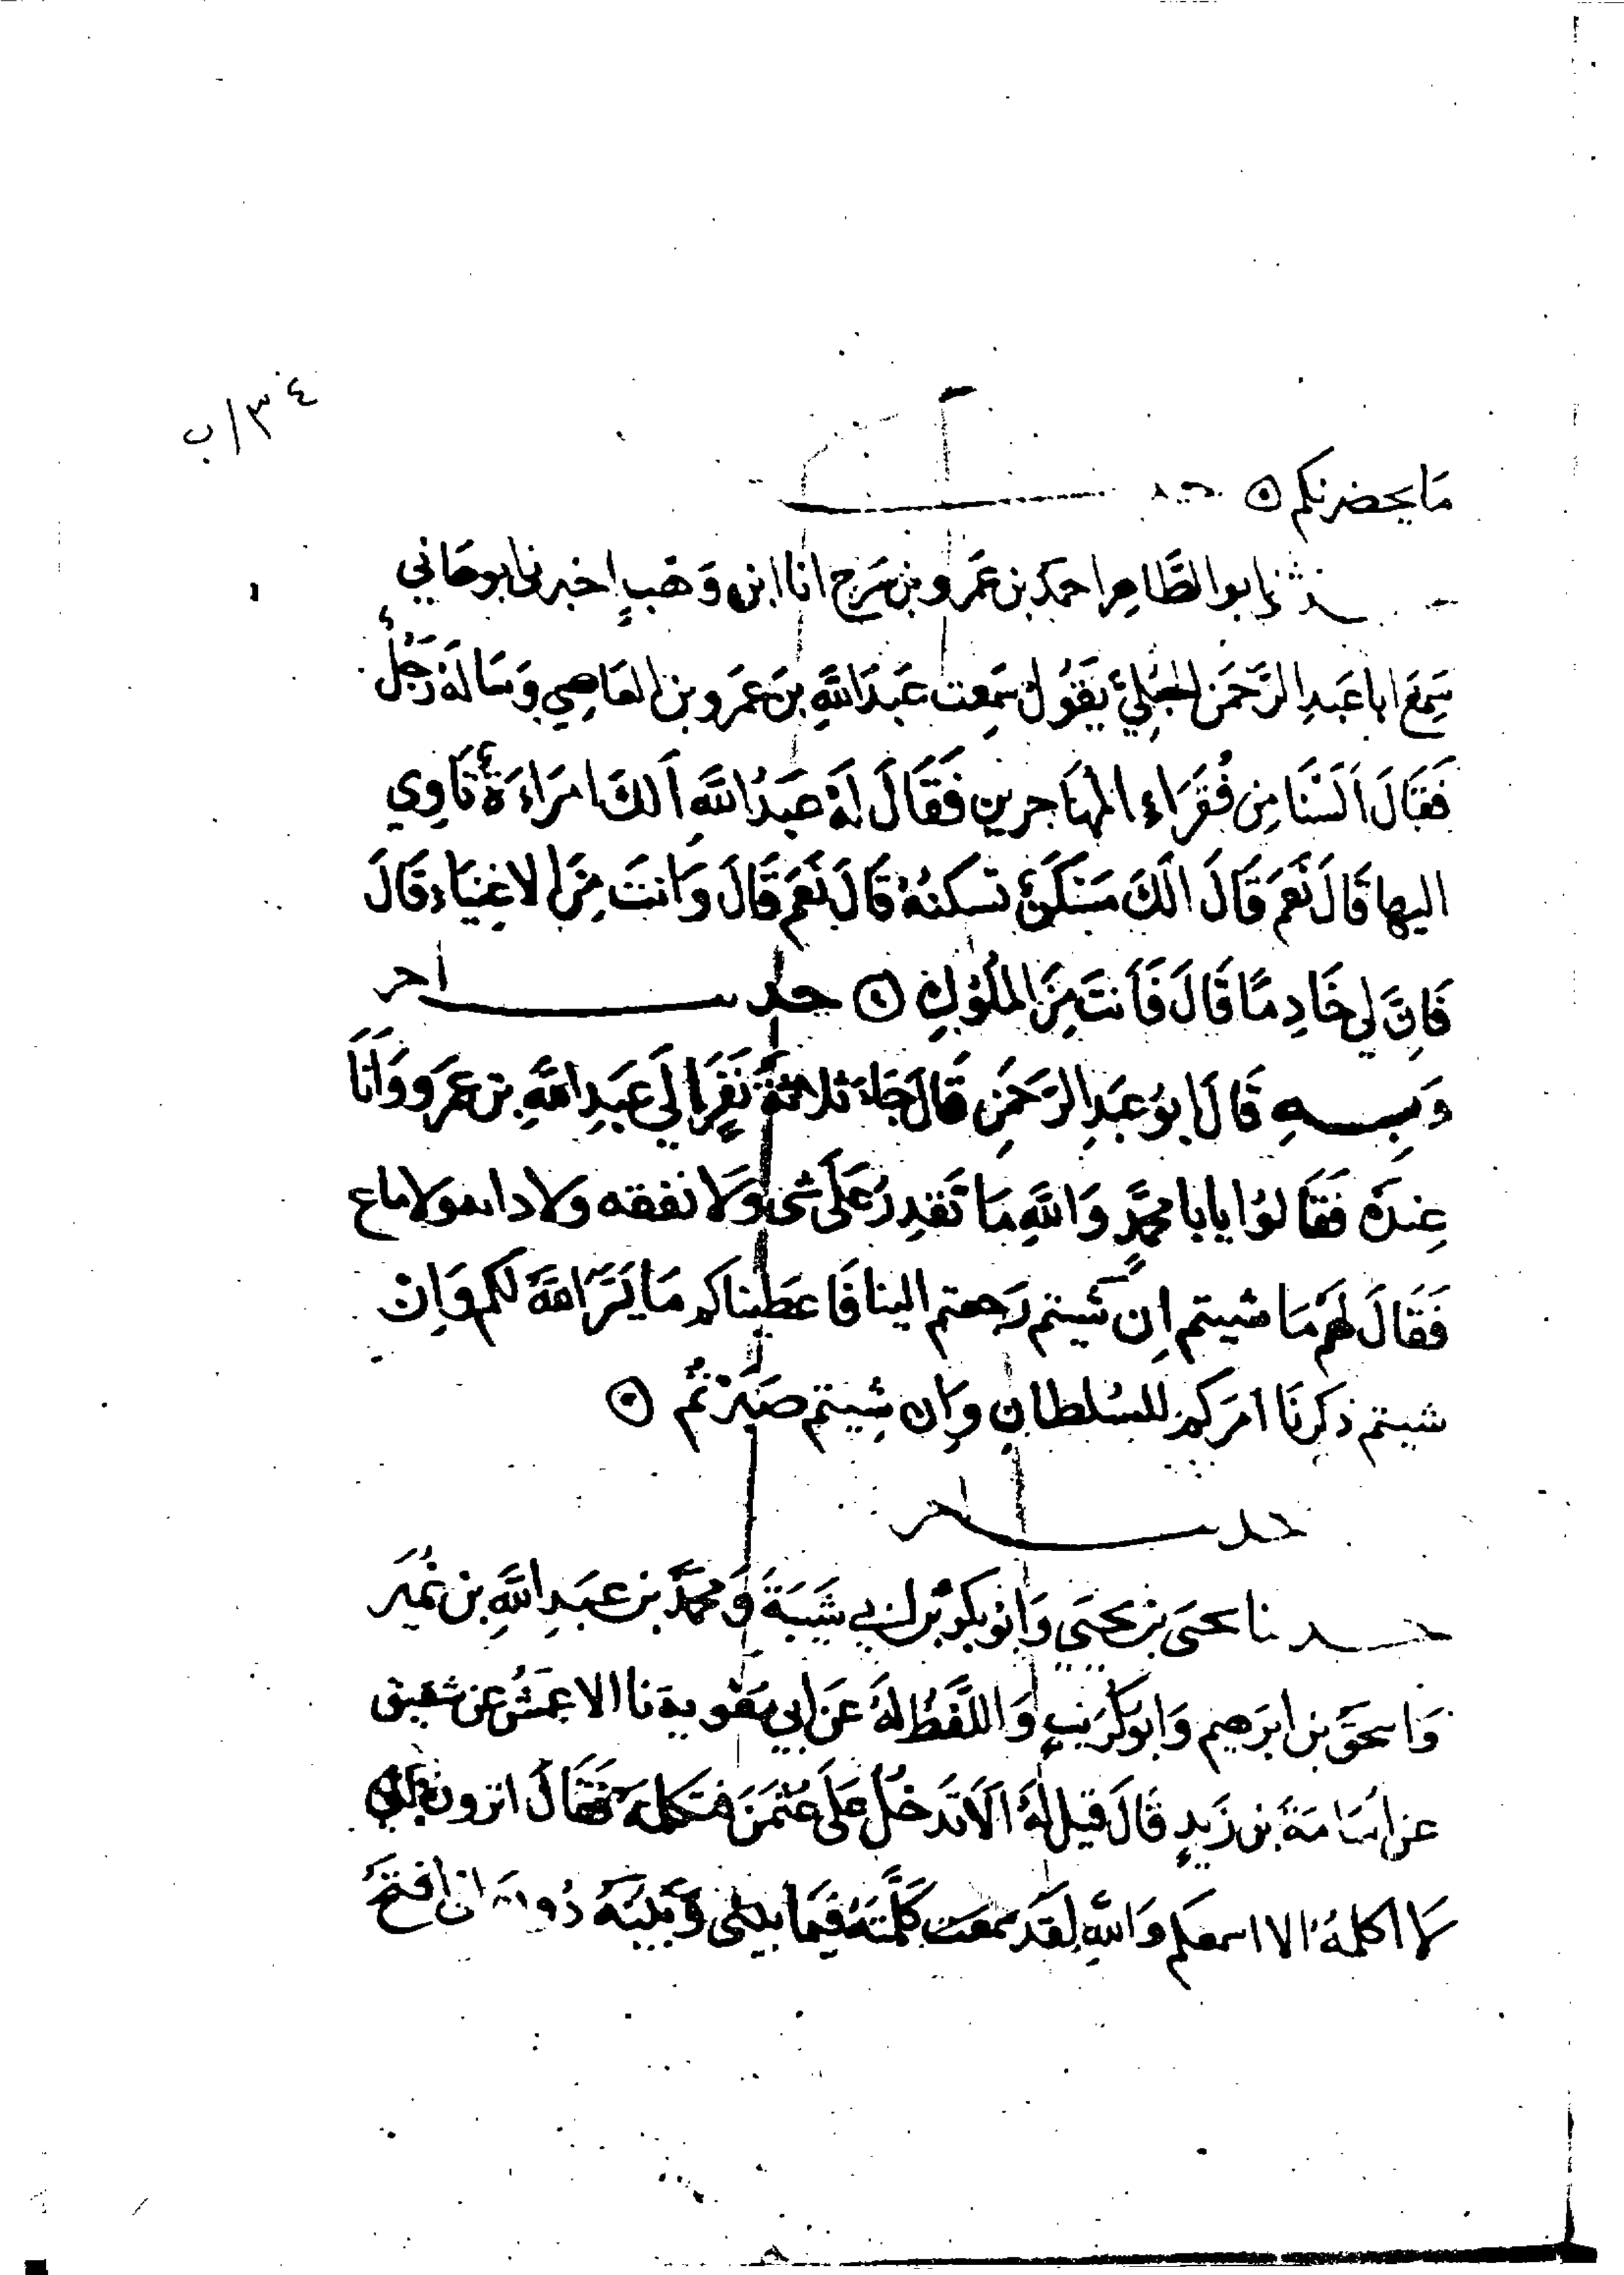 ٣٤/ب
مَا يحضرنكم ۞ حد
حدثنا ابوا لطَّاهِر احمدَ بن عَمَر وبن سَرحِ انا ابن وَهَبٍ اخبرني ابو هَاني
سَمِعَ ابا عَبدِ الرَّحمَن الحبُلِيَّ يقَوُل سَمِعت عَبدَ اللَّهِ بنَ عَمَرو بن العَاصِي وَسَالَهُ رَجُلٌ
فَقَالَ اَلَسْنَا مِن فُقَرَاءِ المهَاجرين فَقَالَ لَهُ عَبدُ اللَّهِ اَلكَ امرَاءَةٌ تَاوِي
اليها قَالَ نَعَم قَالَ الَكَ مَسَكَنٌ تسكنهُ قَالَ نَعَم قَالَ وَانتَ مِنَ الاغِنيَاءِ قَالَ
فَاِنَّ لي خَادِمًا قَالَ فَاَنتَ مِنَ المُلُوْكِ ۞ حد اخر
وَبِهِ قَالَ ابوُ عَبدِ الرَّحَمنِ قَالَ جَاءَ ثلاثةُ نَفَرٍ اِلَي عَبَدِ اللَّهِ بن عَمَرو وَاَنَا
عِندَهُ فَقَالوُا يابا محمَّدٍ وَاللَّهِ مَا نَقدِرُ عَلَى شي وَلَا نفقه ولا دابه ولا متاع
فَقَالَ لَهُم مَا شيتم اِن شيتم رَجعتم الينا فَاعطَيناكم مَا يَسَّرَ اللَّهُ لَكم وَاِنْ
شيتم ذكرنَا امرَكم للسُلطانِ وَاِن شِيتم صَبَرْتُم ۞
حد اخر
حدثنا يحيَى بن يَحيَي وَابُو بكر بن ابي شَيبَةَ وَمحمَّدُ بن عبَدِ اللَّهِ بن نُمَير
وَاسحَقَ بن ابرَهِيم وَابو كُرَيبٍ وَاللَّفظُ لَهُ عَن ابي مَعَوية نا الاعمَشُ عن شقيق
عن اسَامَةَ بن زَيدٍ قَالَ قيل لَهُ اَلَا تَدخُل عَلَى عُثمَنَ فتكلمَه فقَالَ اترون اني
لَا اكلمهُ الا اسمعكم وَاللَّهِ لقَدَ كَلَّمتَهُ فِيمَا بيني وَبَينَهُ دُونَ ان افتحَ